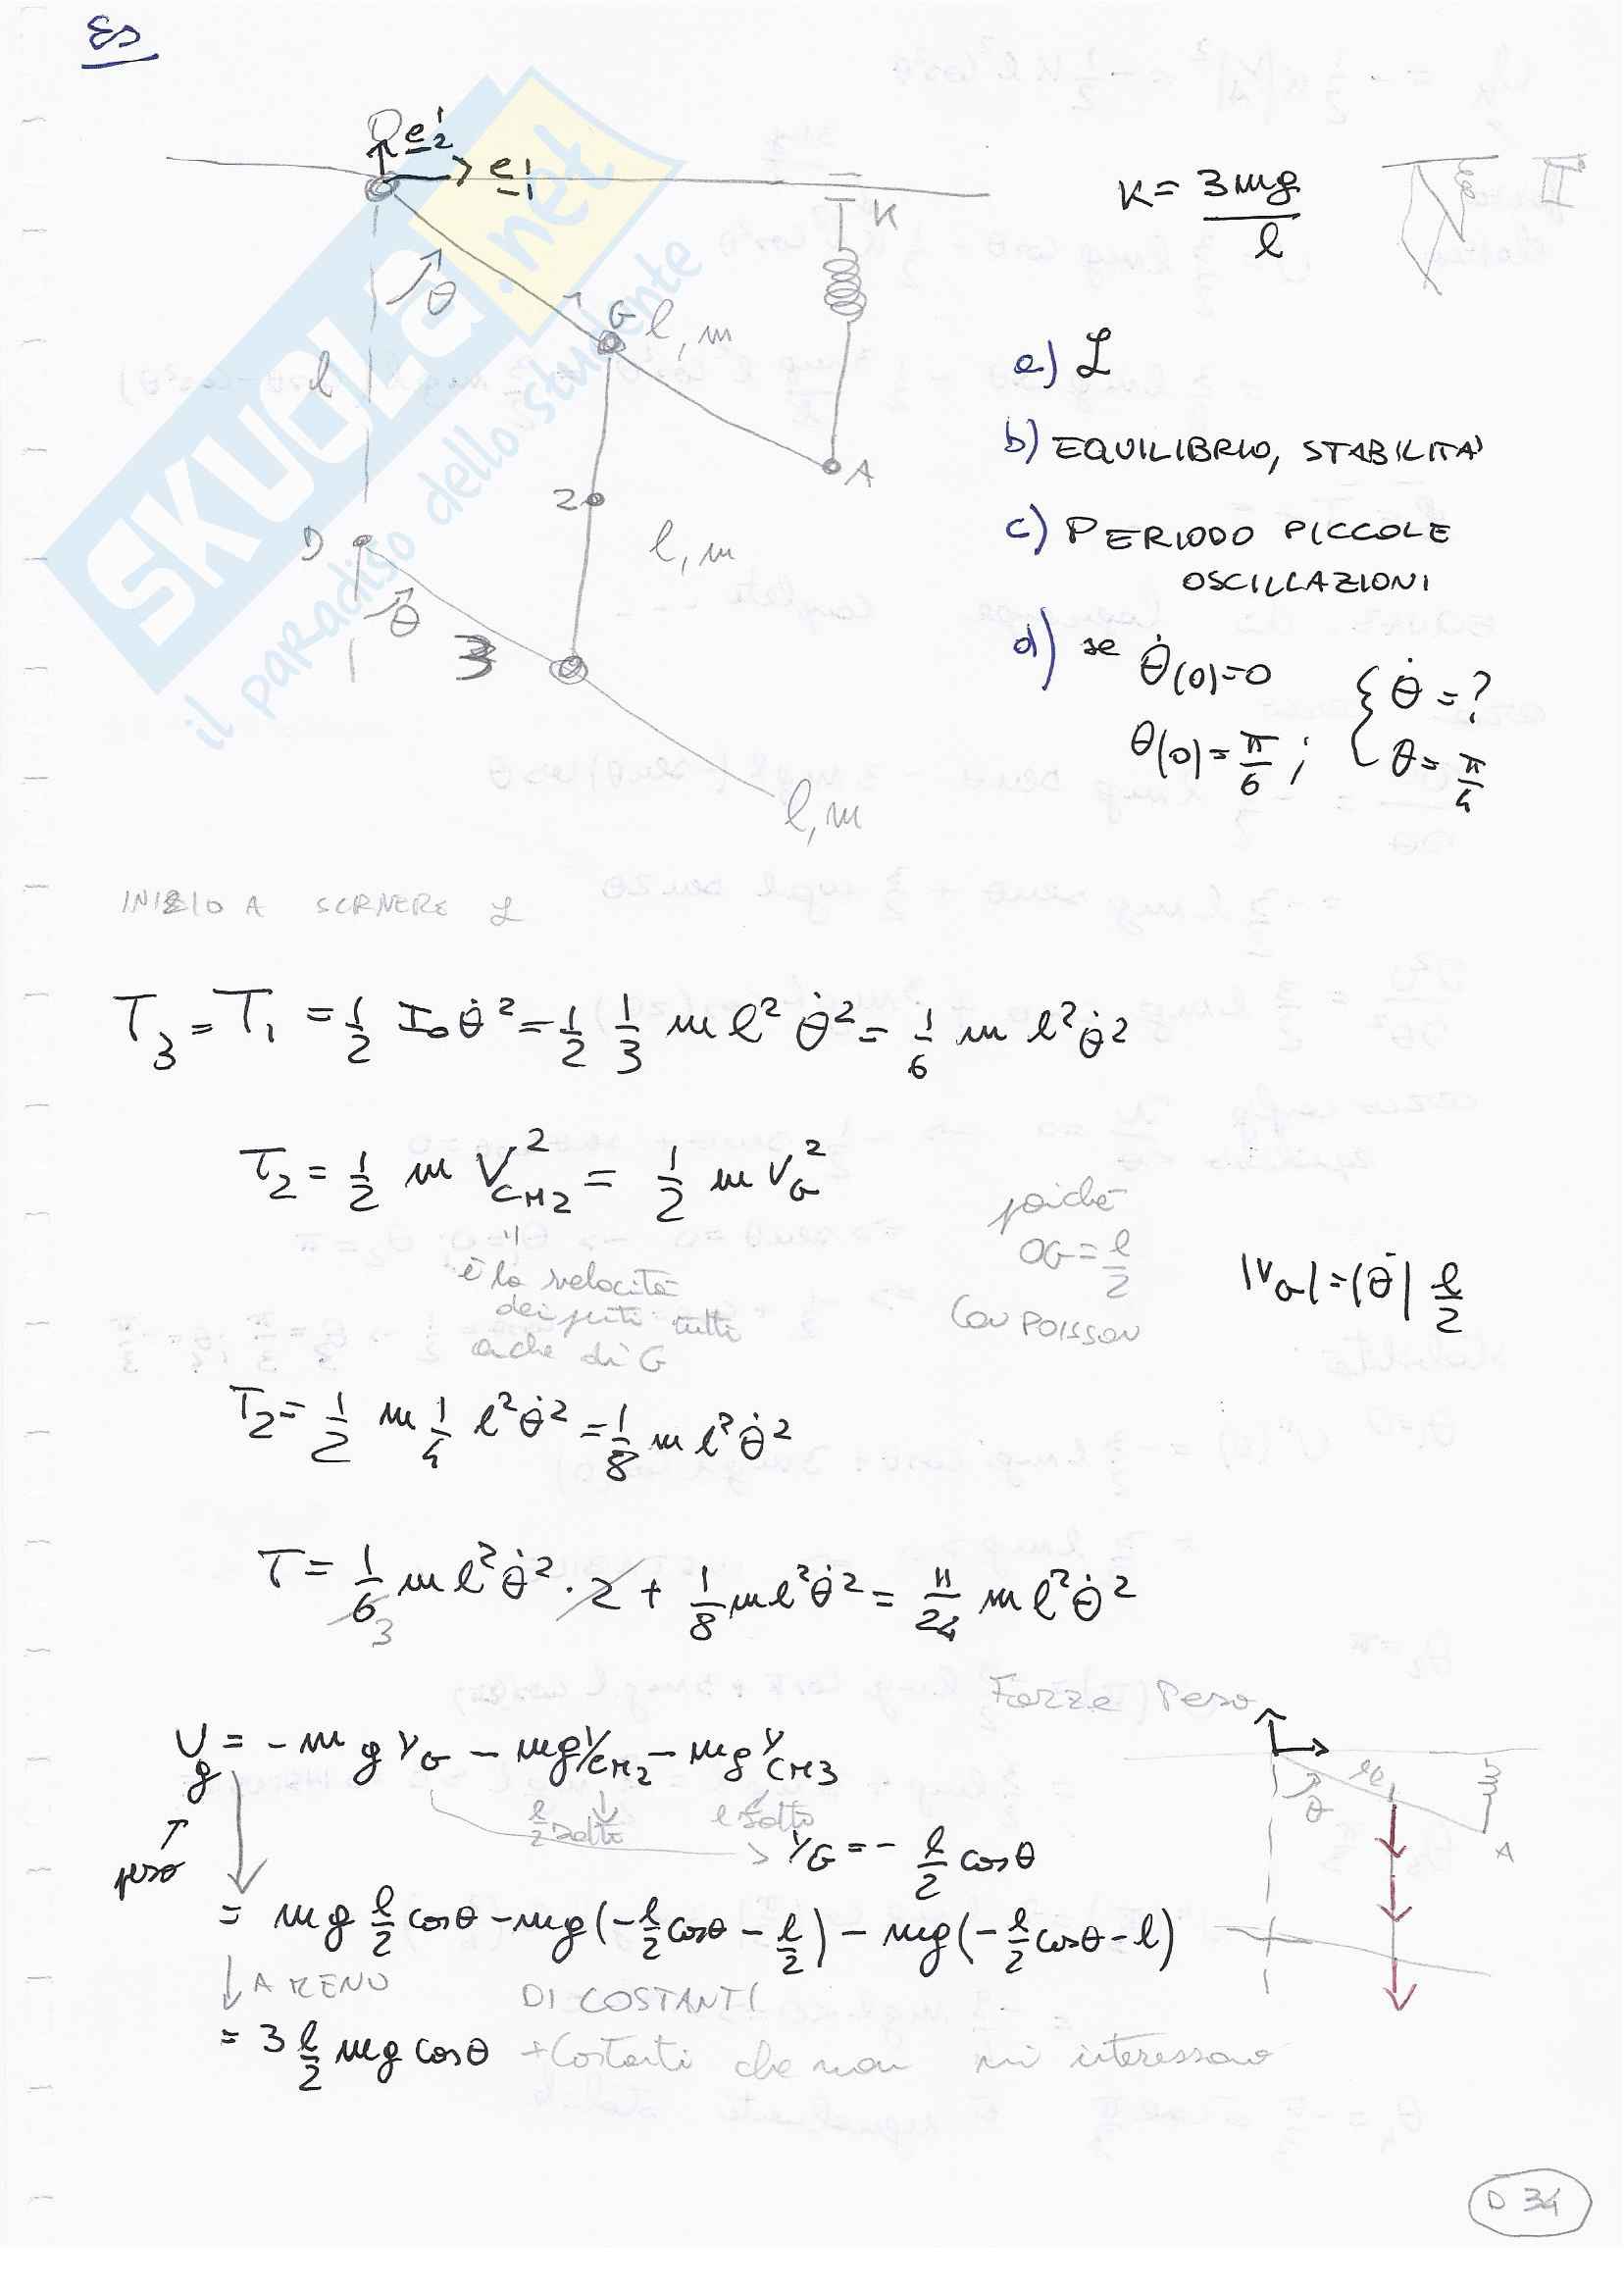 Es
O e'2
e'1
K
K = 3mg/l
θ
G l, m
l
A
2
D
l, m
θ
3
l, m
SKUOLA.net
il paradiso dello studente
a) ℒ
b) EQUILIBRIO, STABILITA'
c) PERIODO PICCOLE
OSCILLAZIONI
d) se θ̇(0)=0 { θ̇=?
θ(0)=π/6 ; θ=π/4
INIZIO A SCRIVERE ℒ
T3 = T1 = 1/2 Io θ̇² = 1/2 1/3 m l² θ̇² = 1/6 m l² θ̇²
T2 = 1/2 m V²CM2 = 1/2 m VG²
è la velocità
dei punti tutti
anche di G
poiché
OG = l/2
CON POISSON
|VG| = |θ̇| l/2
T2 = 1/2 m 1/4 l² θ̇² = 1/8 m l² θ̇²
T = 1/6 m l² θ̇² · 2 + 1/8 m l² θ̇² = 11/24 m l² θ̇²
3
Forze Peso
Ug = - m g yG - mg yCM2 - mg yCM3
peso
l/2 sotto
l sotto
yG = - l/2 cosθ
l/2
θ
A
= mg l/2 cosθ - mg(-l/2 cosθ - l/2) - mg(-l/2 cosθ - l)
A MENO DI COSTANTI
= 3 l/2 mg cosθ + Costanti che non mi interessano
D 34